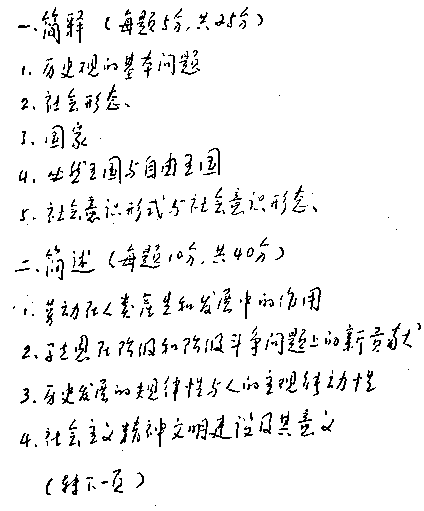 一、简释（每题5分，共25分）
1. 历史观的基本问题
2. 社会形态、
3. 国家
4. 必然王国与自由王国
5. 社会意识形式与社会意识形态、
二、简述（每题10分，共40分）
1. 劳动在人类产生和发展中的作用
2. 马克思在阶级和阶级斗争问题上的新贡献
3. 历史发展的规律性与人的主观能动性
4. 社会主义精神文明建设及其意义
（转下一页）